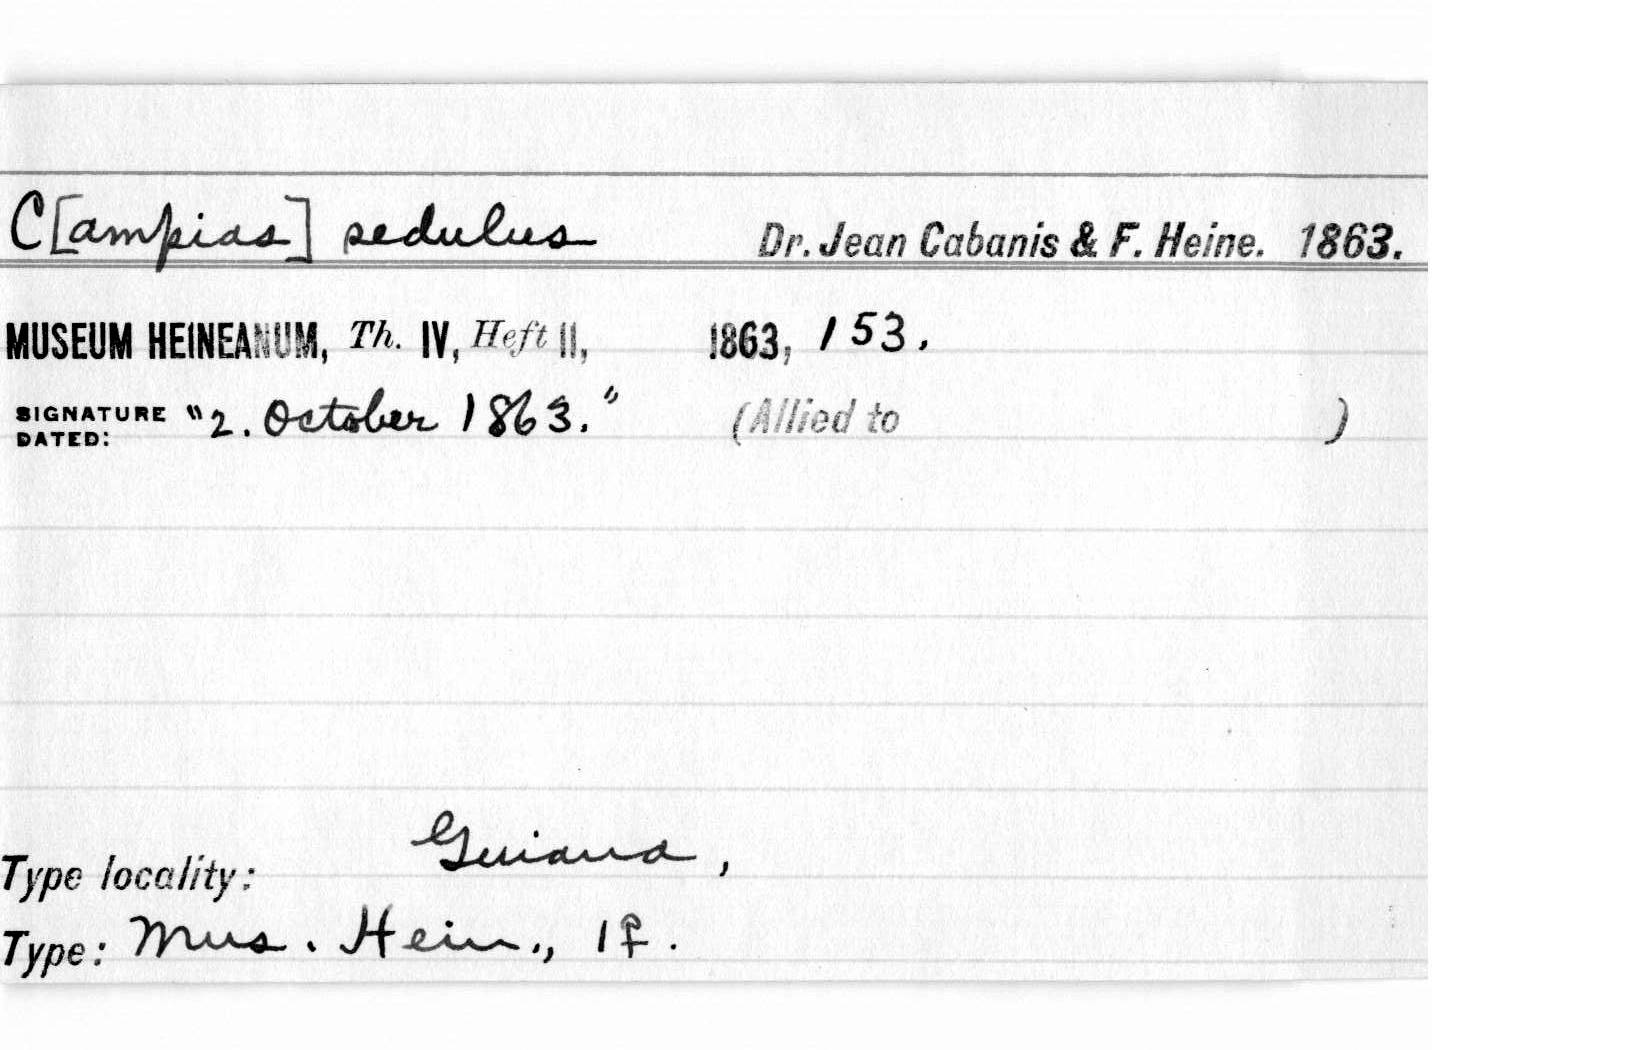 C[ampias] sedulus Dr. Jean Cabanis & F. Heine. 1863.
MUSEUM HEINEANUM, Th. IV, Heft II, 1863, 153.
SIGNATURE DATED: "2. October 1863." (Allied to )
Type locality: Guiana,
Type: Mus. Hein., 1♀.